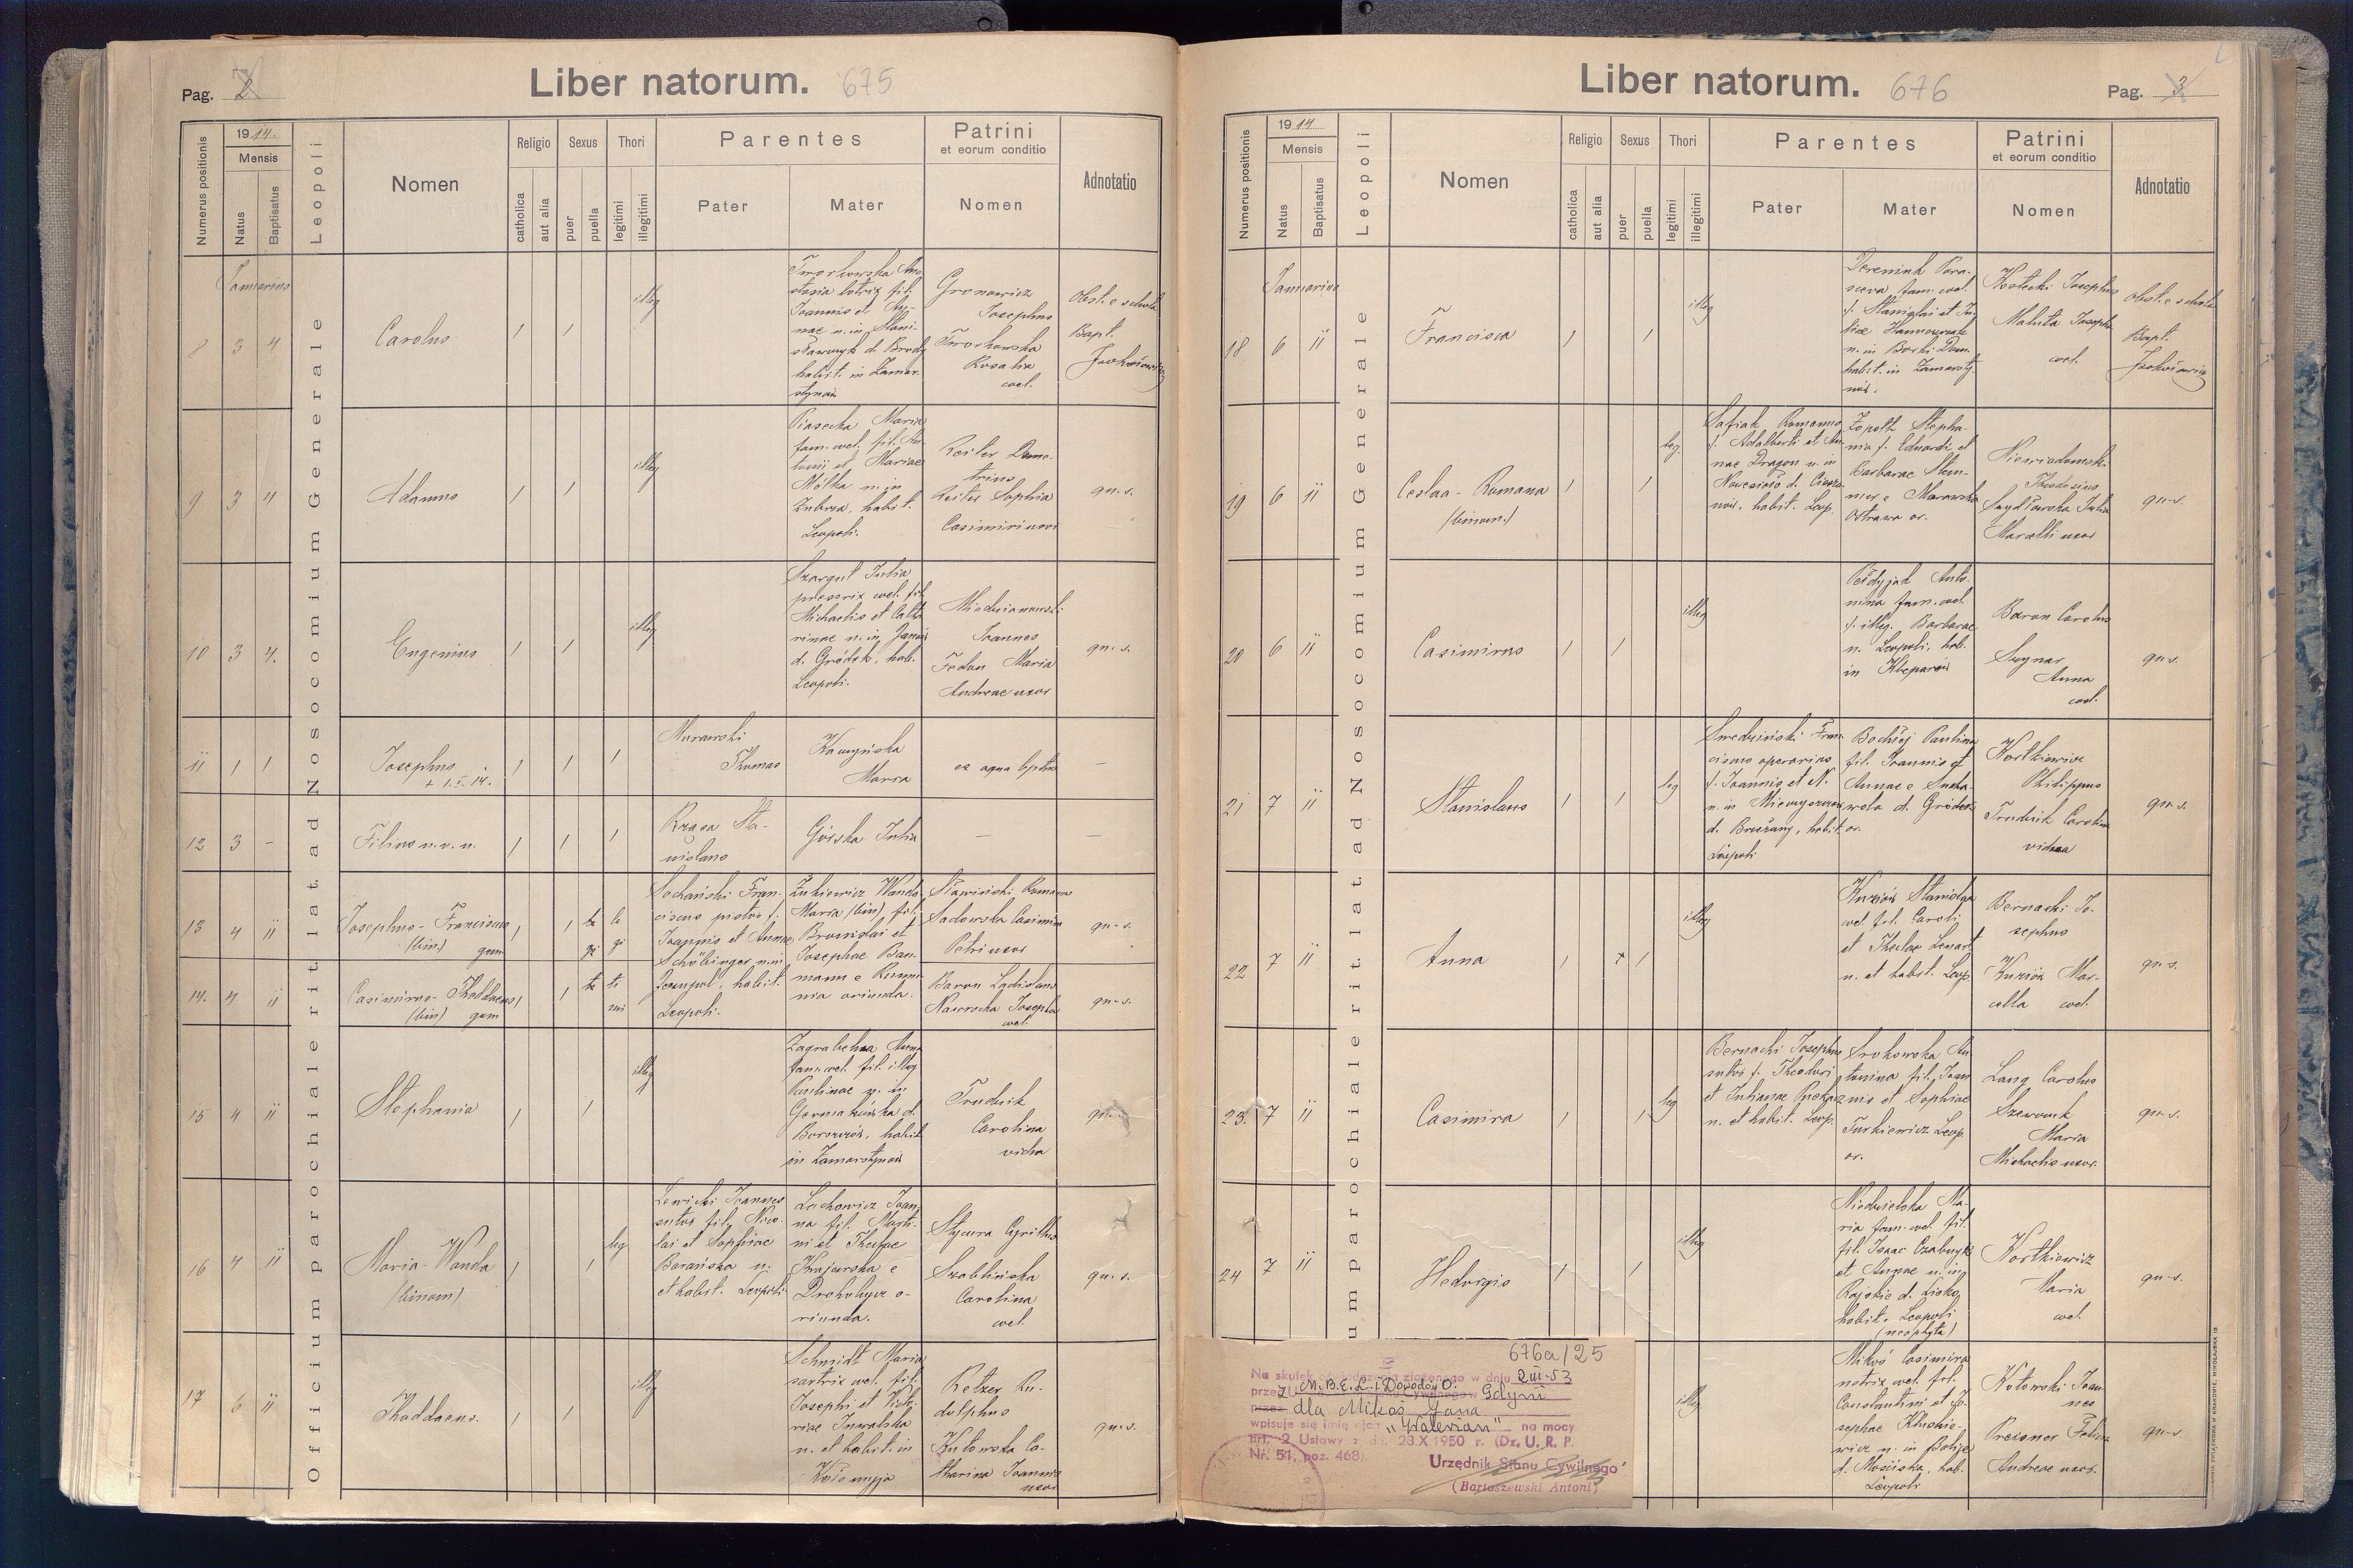 Pag. 2
Liber natorum. 675
Numerus positionis
1914.
Mensis
Natus
Baptisatus
Leopoli
Nomen
Religio
catholica
aut alia
Sexus
puer
puella
Thori
legitimi
illegitimi
Parentes
Pater
Mater
Patrini
et eorum conditio
Nomen
Adnotatio
Officium parochiale rit. lat. ad Nosocomium Generale
Januarius
8 3 4
Carolus
illeg
Joannis et
habit. in Zamar-
stynów
Gronowicz
Josephus
Rosalia
cael.
Obst. e schola
Bapt.
9 3 4
Adamus
illeg
Piasecka Maria
fam. cael. fil. An-
tonii et Mariae
Mólka n. in
Zubrza, habit.
Leopoli.
Reiter Deme-
trius
Reiter Sophia
Casimiri uxor
qu. s.
10 3 4.
Eugenius
illeg
Szargut Julia
Michaelis et Catha
rinae n. in Janów
d. Gródek, hab.
Leopoli.
Joannes
Fedan Maria
Andreae uxor
qu. s.
11 1 1
Josephus
+ 1.I.14.
Murawski
Thomas
Maria
ex aqua bptus
—
12 3 -
Filius n. v. n.
Rząsa Sta-
nislaus
Górska Julia
—
—
13 4 11
Josephus-Franciscus
(bin.) gem
le
gi
Sochański Fran-
ciscus pistor f.
Joannis et Annae
Schölinger n. in
Jezupol, habit.
Leopoli.
Żukiewicz Wanda
Maria (bin) fil.
Bronislai et
Josephae Bau-
mann e Rumu-
nia oriunda.
Sadowska Casimira
Petri uxor
qu. s.
14. 4 11
Casimirus-Thaddaeus
(bin) gem
ti
mi
Baron Ladislaus
Nawrocka Josepha
cael.
qu. s.
15 4 11
Stephania
illeg
Zagrabelna Anna
fam. cael. fil. illeg
Paulinae n. in
Germakówka d.
Borszczów, habit
in Zamarstynów
Frudnik
Carolina
vidua
qu. s.
16 4 11
Maria-Wanda
(binom)
leg
Lewicki Joannes
sutor fil. Nico-
lai et Sophiae
Barańska n.
et habit. Leopoli
Lechowicz Joan
na fil. Marti-
ni et Theclae
Krajewska e
Drohobycz o-
riunda.
Stycura Cyrillus
Szablińska
Carolina
cael.
qu. s.
17 6 11
Thaddaeus.
illeg
Schmidt Maria
sartrix cael. fil.
Josephi et Victo-
riae
n. et habit. in
Kołomyja
Retzer Ru-
dolphus
Kutowska Ca-
tharina Joannis
uxor
qu. s.
Liber natorum. 676
Pag. 3
Numerus positionis
1914
Mensis
Natus
Baptisatus
Leopoli
Nomen
Religio
catholica
aut alia
Sexus
puer
puella
Thori
legitimi
illegitimi
Parentes
Pater
Mater
Patrini
et eorum conditio
Nomen
Adnotatio
um parochiale rit. lat. ad Nosocomium Generale
Januarius
18 6 11
Francisca
illeg
Dereniuk Para-
sceva fam. cael.
f. Stanislai et Ju-
liae
habit. in Zamarsty-
nów.
Kotecki Josephus
Maluta Josepha
cael.
Obst. e schola
Bapt.
19 6 11
Ceslaa-Romana
(binom.)
leg.
Safiak Romanus
f. Adalberti et An-
nae Dragon n. in
Nowesioło d. Ciesza-
nów, habit. Leop.
Zopoth Stepha-
nia f. Eduardi et
Barbarae Stem-
mer e Morawska
Ostrawa or.
Niewiadomski
Theodosius
Szydłowska Julia
uxor
qu. s.
20 6 11
Casimirus
illeg
nina fam. cael.
f. illeg. Barbarae
n. Leopoli, hab.
in Kleparów
Baron Carolus
Anna
cael.
qu. s.
21 7 11
Stanislaus
leg
Smedziński Fran-
ciscus operarius
f. Joannis et N.
d. Brzeżany, habit.
Leopoli
Paulina
fil. Joannis et
Annae e Sucha-
wola d. Gródek
or.
Kortkiewicz
Philippus
Frudnik Carolina
vidua
qu. s.
22 7 11
Anna
illeg
Kuziów Stanislaa
cael. fil. Caroli
et Theclae Lenart
n. et habit. Leop.
Bernacki Jo-
sephus
Kuziów Mar-
cella cael.
qu. s.
23. 7 11
Casimira
leg
Bernacki Josephus
sutor f. Theodori
et Julianae
n. et habit. Leop.
Srokowska An
tonina fil. Joan
nis et Sophiae
Turkiewicz Leop.
or.
Lang Carolus
Szewczuk
Maria
Michaelis uxor.
qu. s.
24 7 11
Hedvigis
illeg
Niedzielska Ma-
ria fam. cael. fil.
fil. Isaac
et Annae n. in
Rajskie d. Lisko
habit. Leopoli
(neophyta)
Kortkiewicz
Maria
cael.
qu. s.
illeg
Mikoś Casimira
cael. fil.
Constantini et Jo-
sephae
d. Mościska, hab.
Leopoli
Kotowski Joan-
nes
Andreae uxor.
qu. s.
676a/25
Na skutek oświadczenia złożonego w dniu 2.III.53
przez Urząd Stanu Cywilnego w Gdyni
z M.B.E.L. i Dowodów O.
przez dla Mikoś Jana
wpisuje się imię ojca „Walerian" na mocy
art. 2 Ustawy z dn. 23.X.1950 r. (Dz. U. R. P.
Nr. 51, poz. 468).
Urzędnik Stanu Cywilnego
(Bartoszewski Antoni)